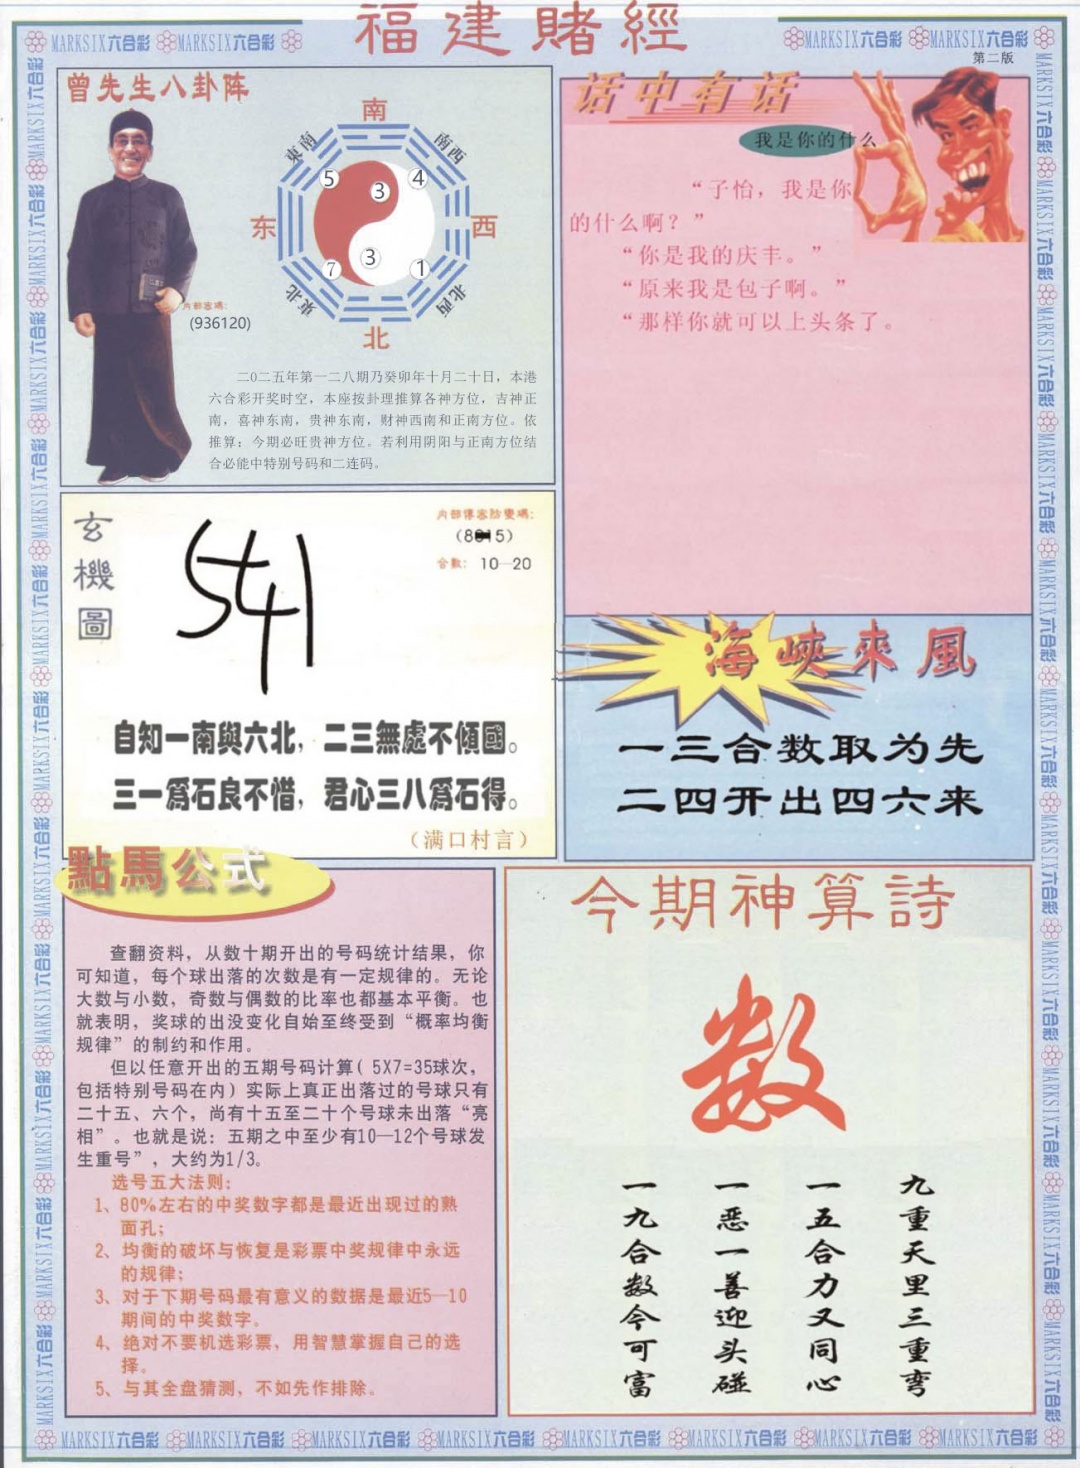 福建賭經
第二版
MARKSIX六合彩
曾先生八卦阵
南
東南
南西
5
3
4
东
西
7
3
1
東北
北西
北
内部密碼:
(936120)
二〇二五年第一二八期乃癸卯年十月二十日，本港
六合彩开奖时空，本座按卦理推算各神方位，吉神正
南，喜神东南，贵神东南，财神西南和正南方位。依
推算：今期必旺贵神方位。若利用阴阳与正南方位结
合必能中特别号码和二连码。
话中有话
我是你的什么
“子怡，我是你
的什么啊？”
“你是我的庆丰。”
“原来我是包子啊。”
“那样你就可以上头条了。
玄機圖
541
内部傳密防變碼:
(8 15)
合數: 10—20
自知一南與六北，二三無處不傾國。
三一爲石良不惜，君心三八爲石得。
（满口村言）
海峽來風
一三合数取为先
二四开出四六来
點馬公式
查翻资料，从数十期开出的号码统计结果，你
可知道，每个球出落的次数是有一定规律的。无论
大数与小数，奇数与偶数的比率也都基本平衡。也
就表明，奖球的出没变化自始至终受到“概率均衡
规律”的制约和作用。
但以任意开出的五期号码计算( 5X7=35球次，
包括特别号码在内) 实际上真正出落过的号球只有
二十五、六个，尚有十五至二十个号球未出落“亮
相”。也就是说：五期之中至少有10—12个号球发
生重号”，大约为1/3。
选号五大法则:
1、80%左右的中奖数字都是最近出现过的熟
面孔;
2、均衡的破坏与恢复是彩票中奖规律中永远
的规律;
3、对于下期号码最有意义的数据是最近5—10
期间的中奖数字。
4、绝对不要机选彩票，用智慧掌握自己的选
择。
5、与其全盘猜测，不如先作排除。
今期神算詩
数
九重天里三重弯
一五合力又同心
一恶一善迎头碰
一九合数今可富